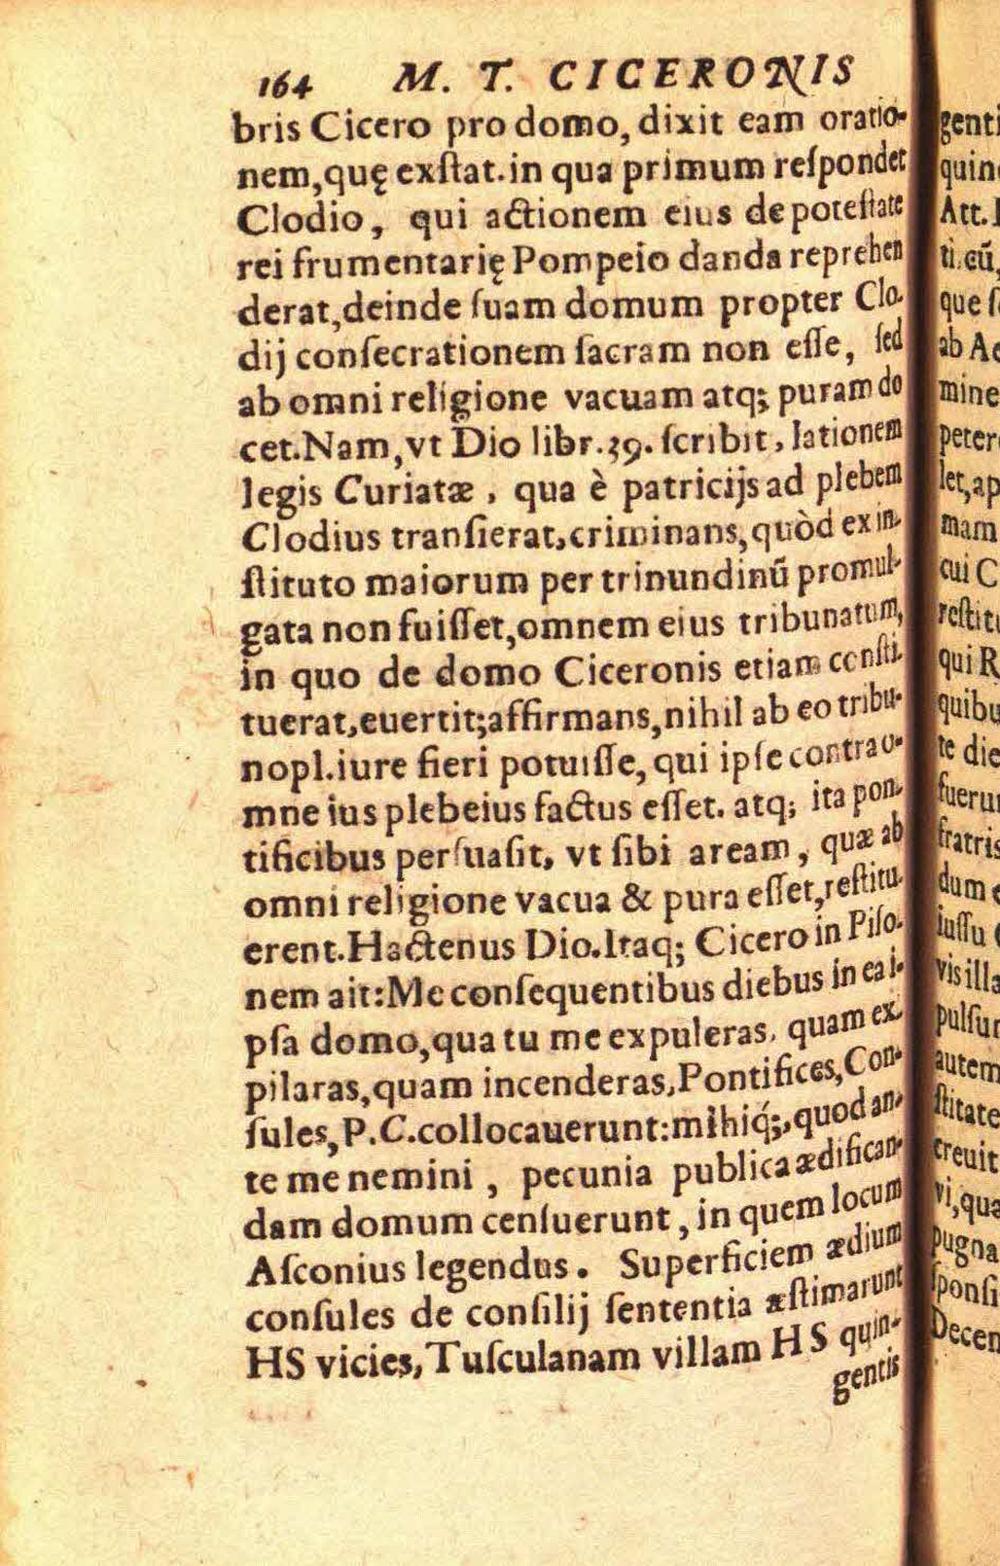 164 M. T. CICERONIS
bris Cicero pro domo, dixit eam oratio-
nem, quę exſtat. in qua primum reſpondet
Clodio, qui actionem eius de poteſtate
rei frumentarię Pompeio danda reprehen
derat, deinde ſuam domum propter Clo-
dij conſecrationem ſacram non eſſe, ſed
ab omni religione vacuam atq; puram do
cet. Nam, vt Dio libr. 39. ſcribit, lationem
legis Curiatæ, qua è patricijs ad plebem
Clodius tranſierat, criminans, quòd ex in-
ſtituto maiorum per trinundinũ promul-
gata non fuiſſet, omnem eius tribunatum,
in quo de domo Ciceronis etiam conſti-
tuerat, euertit; affirmans, nihil ab eo tribu-
no pl. iure fieri potuiſſe, qui ipſe contra o-
mne ius plebeius factus eſſet. atq; ita pon-
tificibus perſuaſit, vt ſibi aream, quæ ab
omni religione vacua & pura eſſet, reſtitu-
erent. Hactenus Dio. Itaq; Cicero in Piſo-
nem ait: Me conſequentibus diebus in ea i-
pſa domo, qua tu me expuleras, quam ex-
pilaras, quam incenderas, Pontifices, Con-
ſules, P. C. collocauerunt: mihiq́;, quod an-
te me nemini, pecunia publica ædifican-
dam domum cenſuerunt, in quem locum
Aſconius legendus. Superficiem ædium
conſules de conſilij ſententia æſtimarunt
HS vicies, Tuſculanam villam HS quin-
gentis
genti
quin
Att.
ti. cũ,
que ſ
ab A
mine
peter
let, ap
mam
cui C
reſtit
qui R
quibu
te die
fueru
fratris
dum
iuſſu
vis illa
pulſu
autem
ſtitate
creuit
vi, qua
pugna
ſponſi
Decen